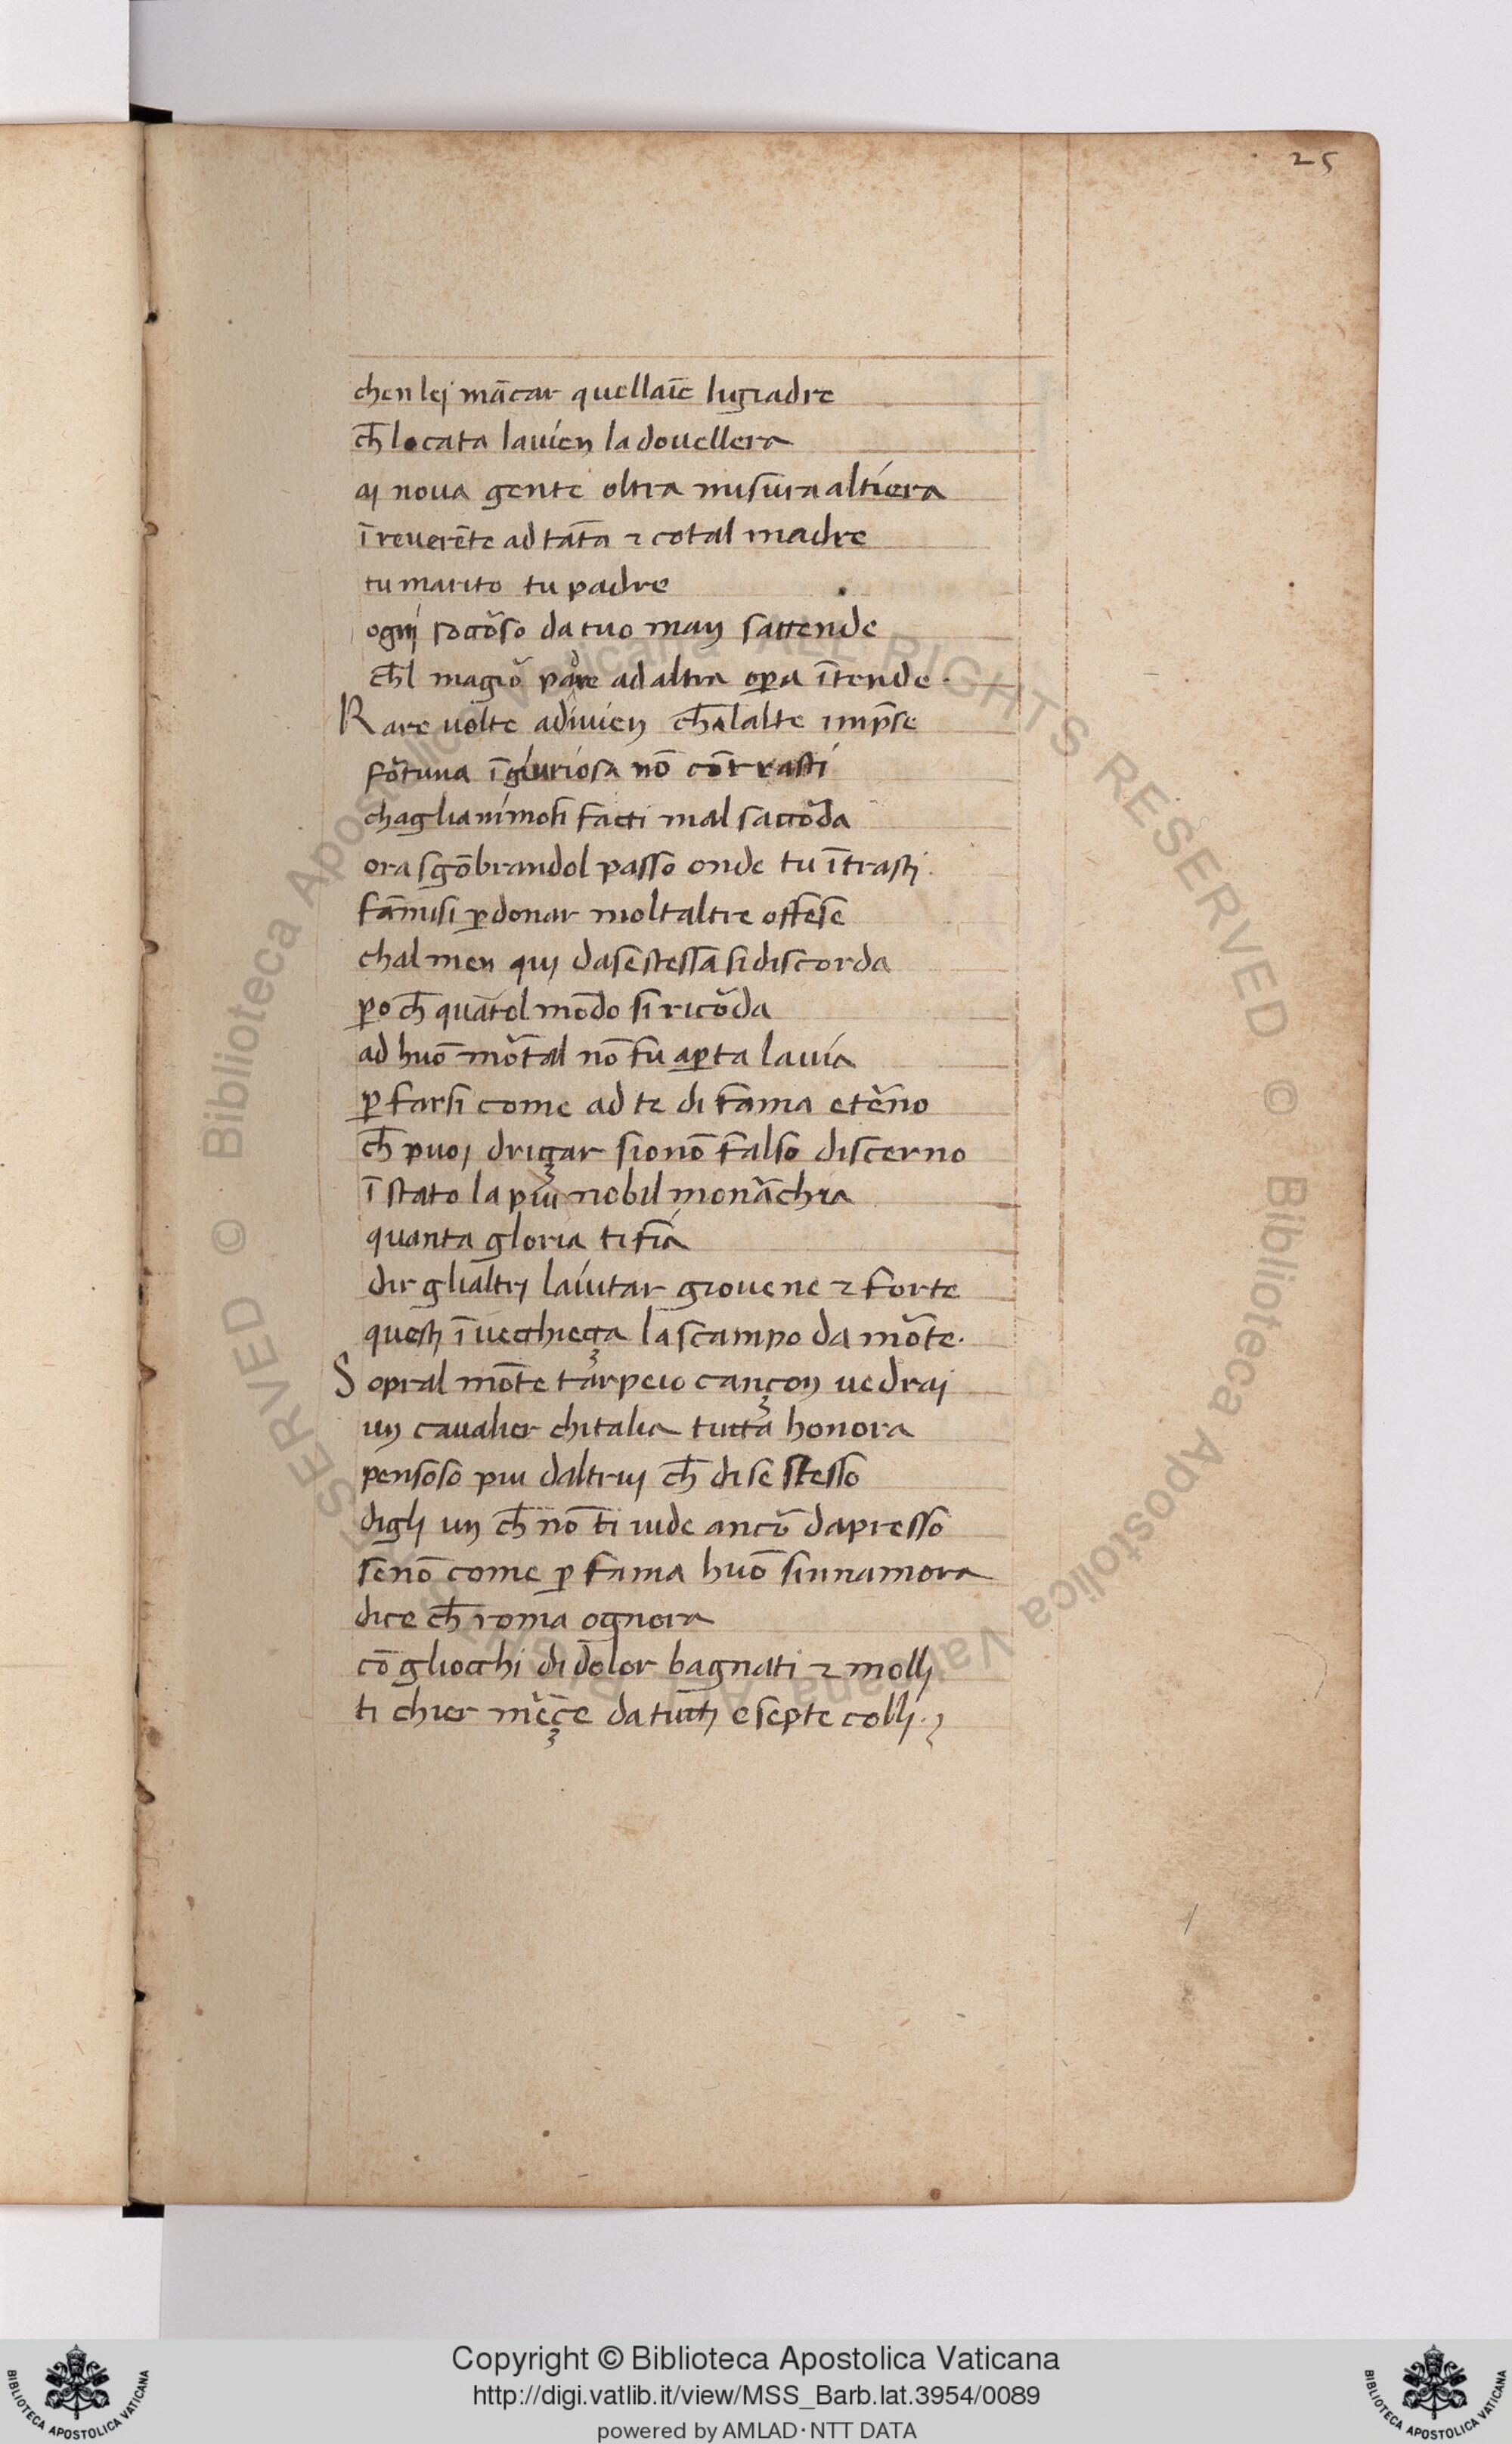 25
chen lej mācar quellaīe ligiadre
ch̄ locata lauien la douellera
aj noua gente oltra misura altiera
ī reuerēte ad tāta ⁊ cotal madre
tu marito tu padre
ognj soccōso da tuo man sattende
ch̄l magiō padre ad altra oꝑa ītende.
Rare uolte adiuien ch̄alalte imp̄se
fōtuna īgiuriosa nō cōtrasti
chaglianimosi facti mal saccōda
ora sgōbrandol passo onde tu ītrastj.
fāmisi ꝑdonar moltaltre offese
chalmen quj da se stessa si discorda
ꝑo ch̄ quātol mōdo si ricōda
ad huō mōtal nō fu aꝑta la uia
ꝑ farsi come ad te di fama etēno
ch̄ puoj driçar sio nō falso discerno
ī stato la piu nobil monāchia
quanta gloria ti fia
dir glialtrj laiutar giouene ⁊ forte
questj ī uecchieçça la scampo da mōte.
Sopral mōte tarpeio cançon uedraj
un caualier chitalia tutta honora
pensoso piu daltruj ch̄ di se stesso
diglj un ch̄ nō ti uide ancō dapresso
se nō come ꝑ fama huō sinnamora
dice ch̄ roma ognora
cō gliocchi di dolor bagnati ⁊ mollj
ti chier mēçe da tuttj e septe collj.
© Biblioteca Apostolica Vaticana ALL RIGHTS RESERVED
© Biblioteca Apostolica Vaticana ALL RIGHTS RESERVED
Copyright © Biblioteca Apostolica Vaticana
http://digi.vatlib.it/view/MSS_Barb.lat.3954/0089
powered by AMLAD·NTT DATA
BIBLIOTECA APOSTOLICA VATICANA
BIBLIOTECA APOSTOLICA VATICANA